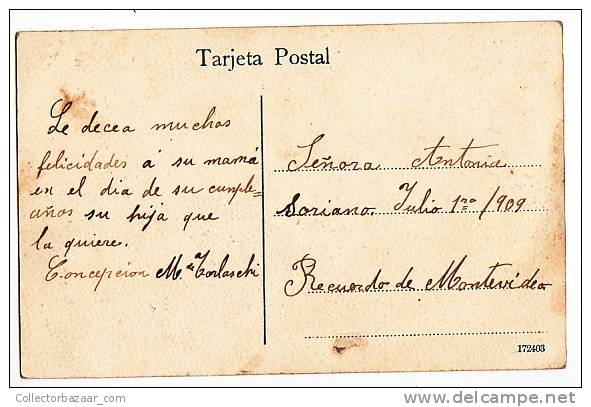 Tarjeta Postal
Le decea muchas
felicidades á su mamá
en el dia de su cumple=
años su hija que
la quiere.
Concepcion M.ª de Torlaschi
Señora Antonia
Soriano. Julio 1ro/909
Recuerdo de Montevideo
172403
© CollectorBazaar.com
delcampe.net